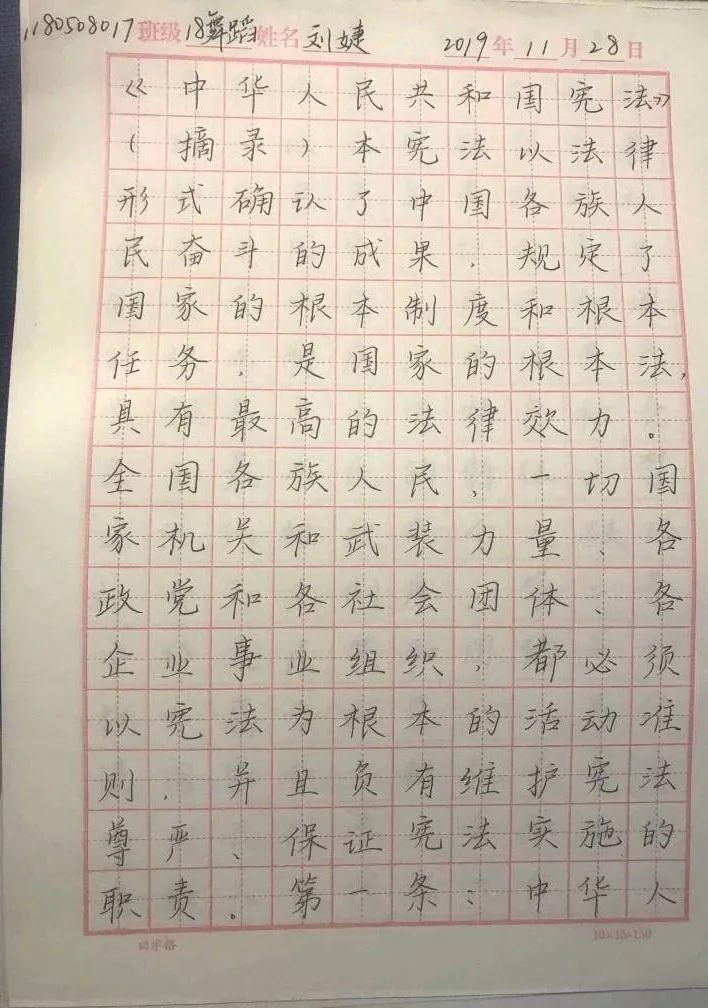 180508017 班级 18舞蹈 姓名 刘婕 2019年11月28日
《中华人民共和国宪法》
（摘录）本宪法以法律
形式确认了中国各族人
民奋斗的成果，规定了
国家的根本制度和根本
任务，是国家的根本法，
具有最高的法律效力。
全国各族人民，一切国
家机关和武装力量、各
政党和各社会团体、各
企业事业组织，都必须
以宪法为根本的活动准
则，并且负有维护宪法
尊严、保证宪法实施的
职责。第一条：中华人
10×15=150